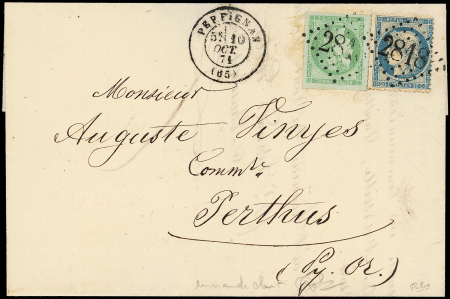 PERPIGNAN
5E 10
OCT.
71
(65)
281
2818
Monsieur
Auguste Vinyes
Commt.
Perthus
(Py. Or.)